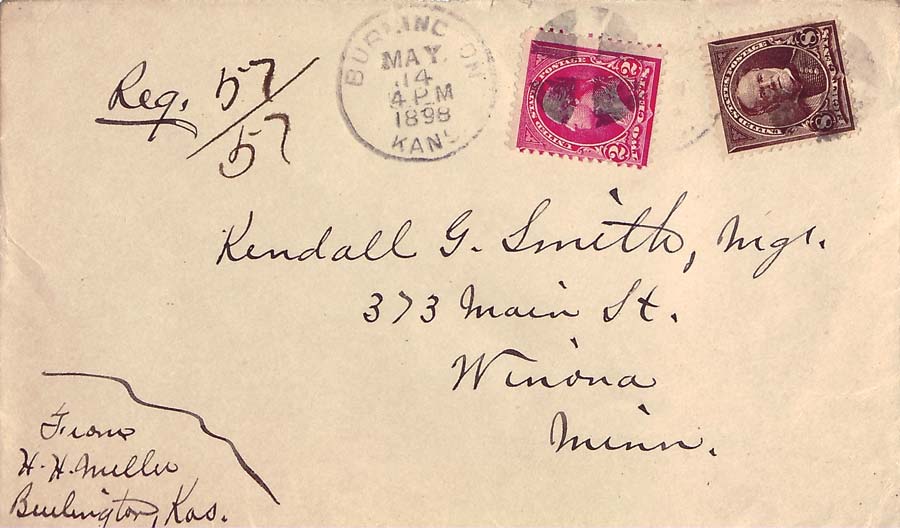 Reg. 57/57
BURLINGTON
MAY
14
4 PM
1898
KANS
UNITED STATES POSTAGE
2 2
UNITED STATES POSTAGE
8 8
Kendall G. Smith, Mgr.
373 Main St.
Winona
Minn.
From
H. H. Miller
Burlington, Kas.